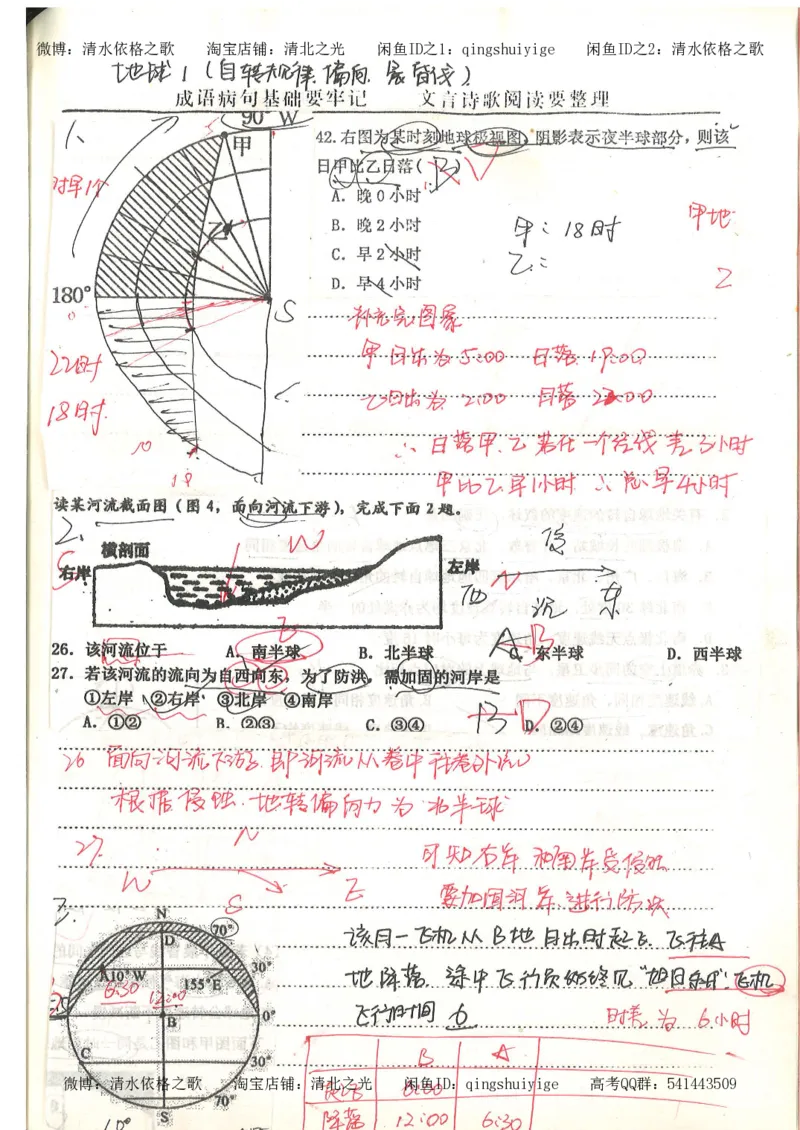 微博：清水依格之歌 淘宝店铺：清北之光 闲鱼ID之1：qingshuiyige 闲鱼ID之2：清水依格之歌
地球1（自转规律、偏向、晨昏线）
成语病句基础要牢记 文言诗歌阅读要整理
1、
90° W
甲
乙
180°
S
22时
18时
10
18
42.右图为某时刻地球极视图，阴影表示夜半球部分，则该
日甲比乙日落（ ）
A．晚0小时
B．晚2小时
C．早2小时
D．早4小时
甲：18时
乙：
甲地
乙
补充完图象
甲日出为5:00 日落19:00
乙日出为2:00
∴日落甲、乙若在一个经线差3小时
甲比乙早1小时 ∴总早4小时
读某河流截面图（图4，面向河流下游），完成下面2题。
2、
横剖面
右岸
左岸
S
W
N
E
西
东
26．该河流位于 A．南半球 B．北半球 C．东半球 D．西半球
27．若该河流的流向为自西向东，为了防洪，需加固的河岸是
①左岸 ②右岸 ③北岸 ④南岸
A．①② B．②③ C．③④ D．②④
26 面向河流下游，即河流从卷中往卷外流
根据侵蚀，地转偏向力为北半球
27．
N
W
E
S
可知右岸和南岸受侵蚀
要加固河岸进行防洪
3、
N
D
70°
30°
A10° W
155° E
6:30
12:00
0°
B
C
30°
70°
S
该同一飞机从B地日出时起飞，飞往A
地降落，途中飞行员始终见“旭日东升”，飞机
飞行时间6
时差为6小时
B A
降落 12:00 6:30
微博：清水依格之歌 淘宝店铺：清北之光 闲鱼ID：qingshuiyige 高考QQ群：541443509